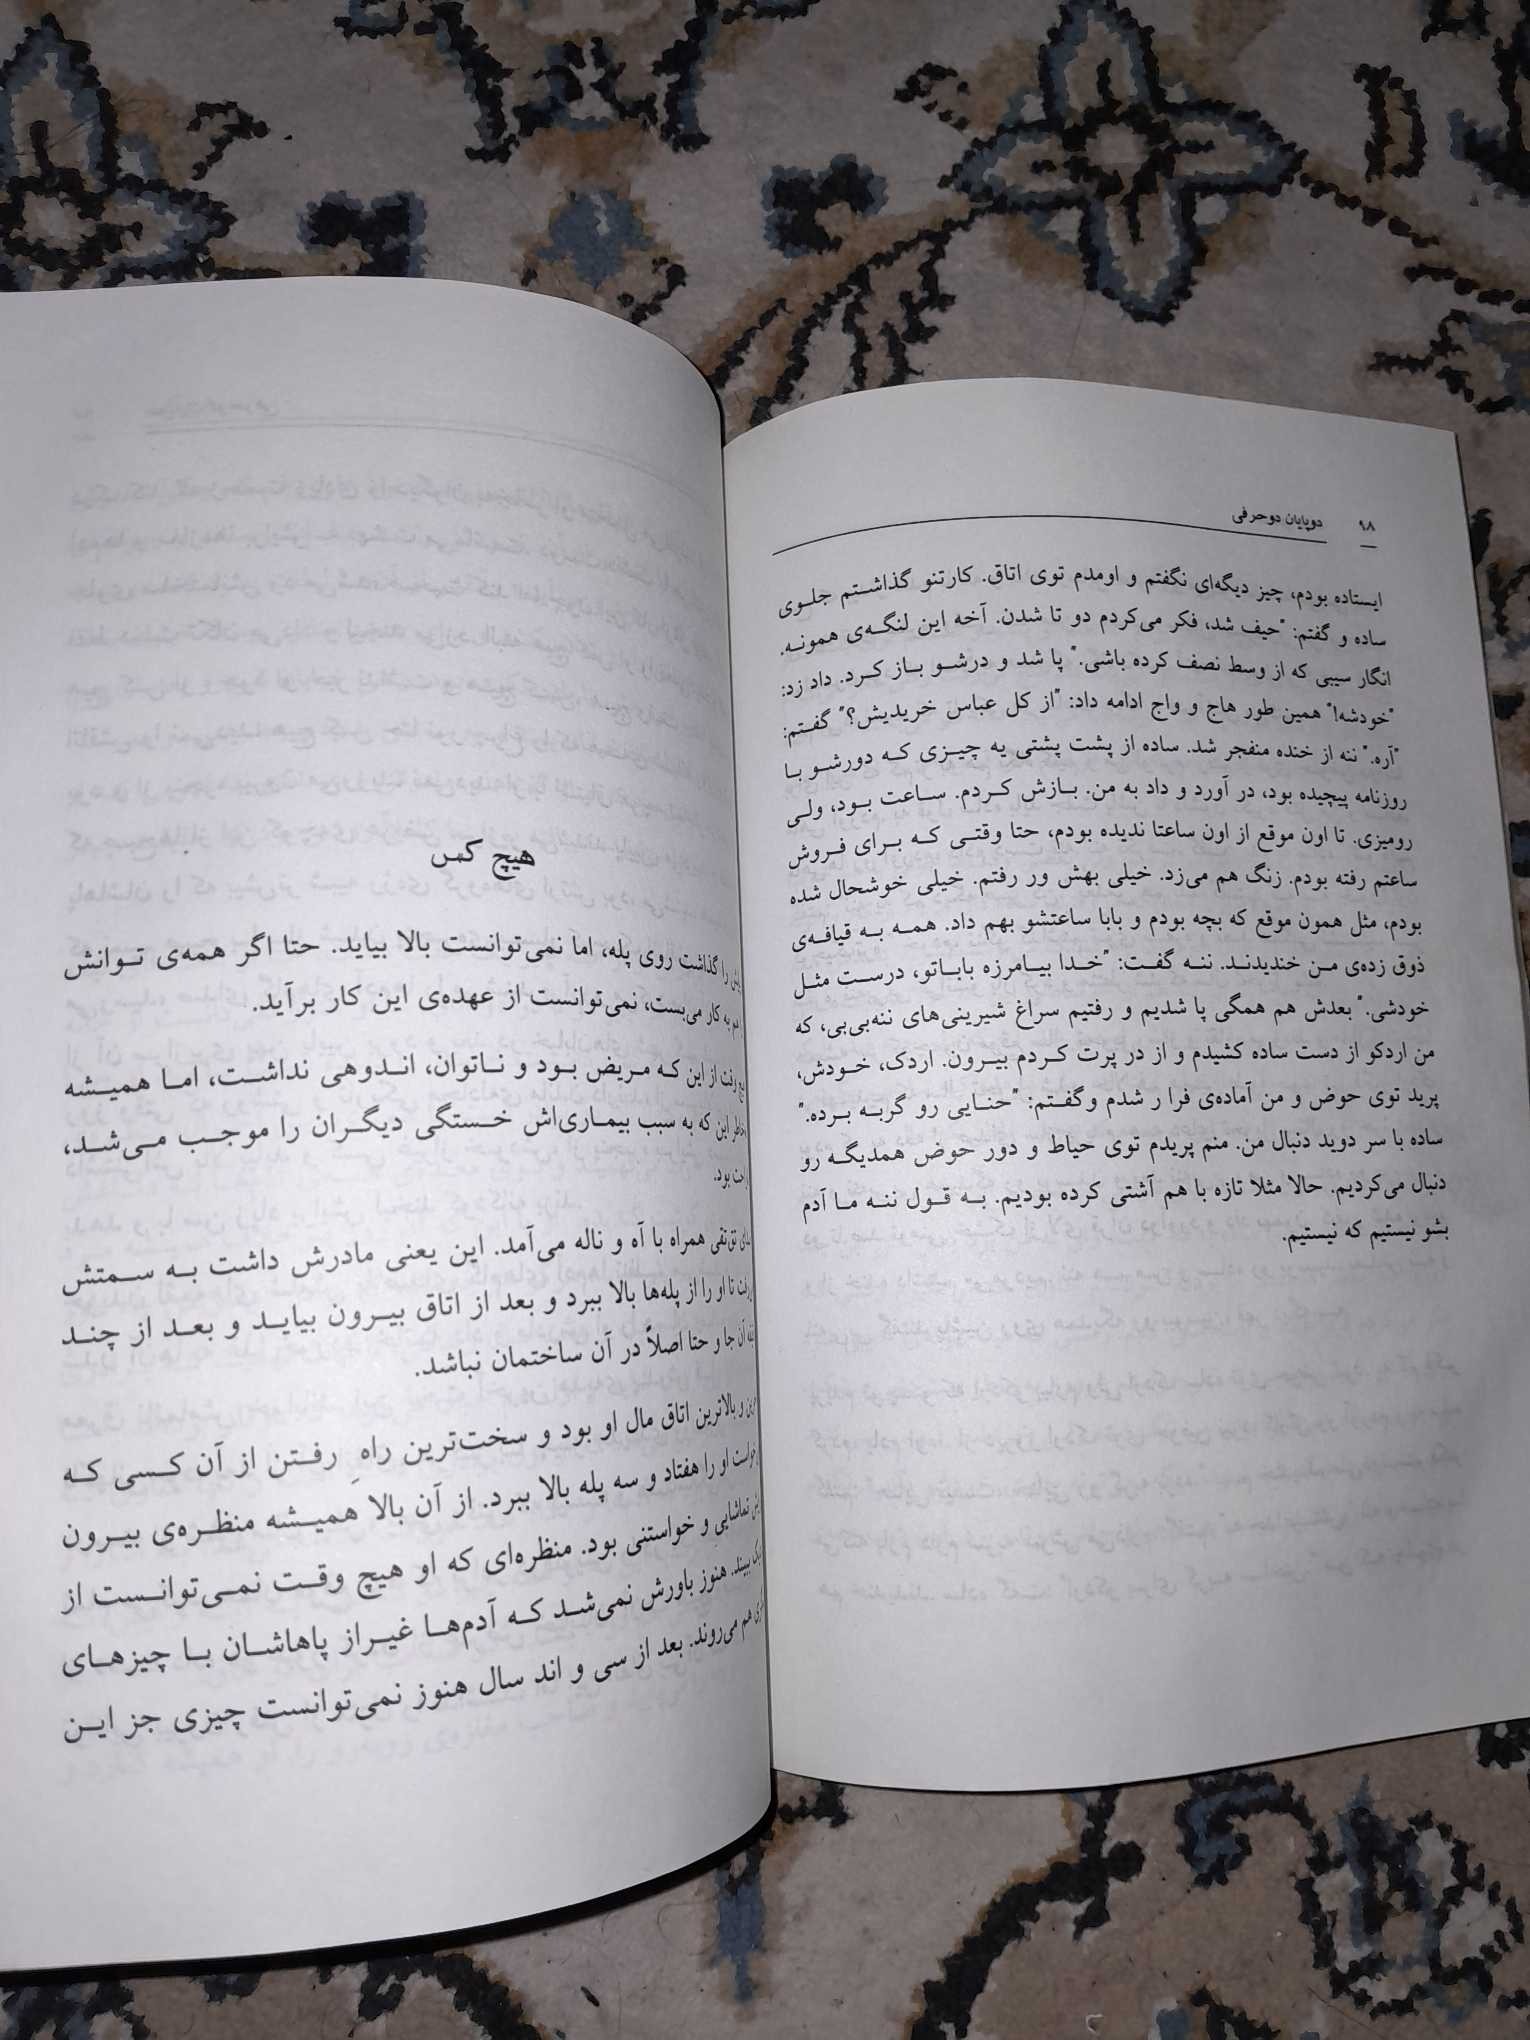 ۹۸
دوپایان دوحرفی
ایستاده بودم، چیز دیگه‌ای نگفتم و اومدم توی اتاق. کارتنو گذاشتم جلوی
ساده و گفتم: "حیف شد، فکر می‌کردم دو تا شدن. آخه این لنگه‌ی همونه.
انگار سیبی که از وسط نصف کرده باشی." پا شد و درشو باز کرد. داد زد:
"خودشه!" همین طور هاج و واج ادامه داد: "از کل عباس خریدیش؟" گفتم:
"آره." ننه از خنده منفجر شد. ساده از پشت پشتی یه چیزی که دورشو با
روزنامه پیچیده بود، در آورد و داد به من. بازش کردم. ساعت بود، ولی
رومیزی. تا اون موقع از اون ساعتا ندیده بودم، حتا وقتی که برای فروش
ساعتم رفته بودم. زنگ هم می‌زد. خیلی بهش ور رفتم. خیلی خوشحال شده
بودم، مثل همون موقع که بچه بودم و بابا ساعتشو بهم داد. همه به قیافه‌ی
ذوق زده‌ی من خندیدند. ننه گفت: "خدا بیامرزه باباتو، درست مثل
خودشی." بعدش هم همگی پا شدیم و رفتیم سراغ شیرینی‌های ننه‌بی‌بی، که
من اردکو از دست ساده کشیدم و از در پرت کردم بیرون. اردک، خودش،
پرید توی حوض و من آماده‌ی فرا ر شدم وگفتم: "حنایی رو گربه برده."
ساده با سر دوید دنبال من. منم پریدم توی حیاط و دور حوض همدیگه رو
دنبال می‌کردیم. حالا مثلا تازه با هم آشتی کرده بودیم. به قول ننه ما آدم
بشو نیستیم که نیستیم.
هیچ کس
را گذاشت روی پله، اما نمی‌توانست بالا بیاید. حتا اگر همه‌ی توانش
هم به کار می‌بست، نمی‌توانست از عهده‌ی این کار برآید.
وقت از این که مریض بود و ناتوان، اندوهی نداشت، اما همیشه
این که به سبب بیماری‌اش خستگی دیگران را موجب می‌شد،
بود.
تق‌تقی همراه با آه و ناله می‌آمد. این یعنی مادرش داشت به سمتش
تا او را از پله‌ها بالا ببرد و بعد از اتاق بیرون بیاید و بعد از چند
آن جا و حتا اصلاً در آن ساختمان نباشد.
و بالاترین اتاق مال او بود و سخت‌ترین راهِ رفتن از آن کسی که
او را هفتاد و سه پله بالا ببرد. از آن بالا همیشه منظره‌ی بیرون
تماشایی و خواستنی بود. منظره‌ای که او هیچ وقت نمی‌توانست از
ببیند. هنوز باورش نمی‌شد که آدم‌ها غیراز پاهاشان با چیزهای
هم می‌روند. بعد از سی و اند سال هنوز نمی‌توانست چیزی جز این